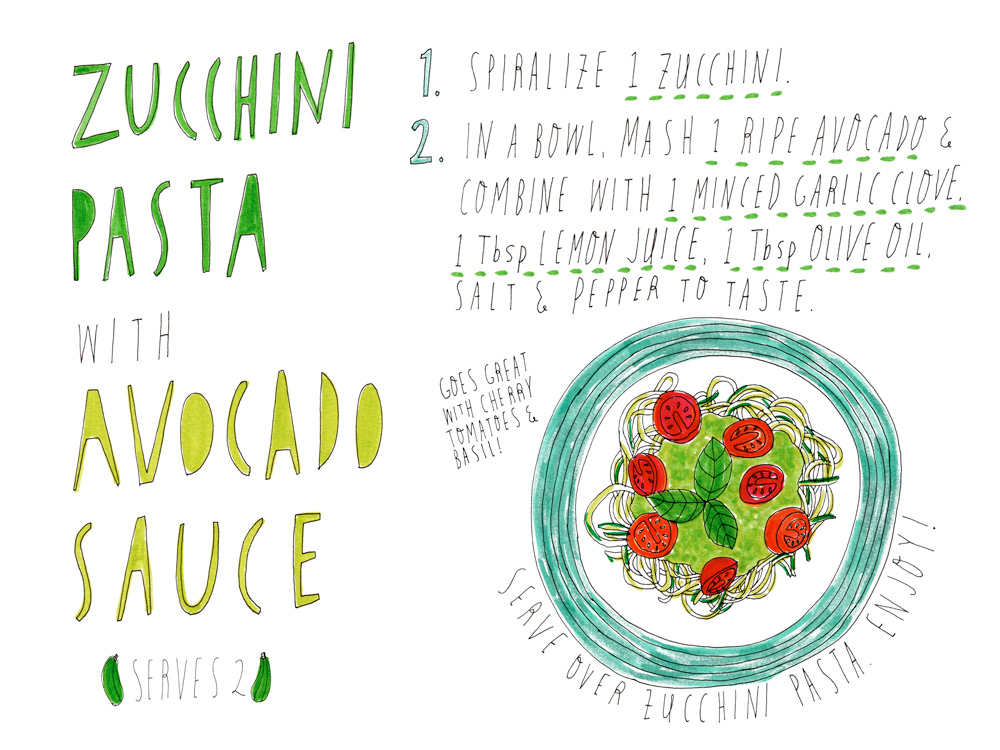 ZUCCHINI
PASTA
WITH
AVOCADO
SAUCE
SERVES 2
1. SPIRALIZE 1 ZUCCHINI.
2. IN A BOWL, MASH 1 RIPE AVOCADO &
COMBINE WITH 1 MINCED GARLIC CLOVE,
1 Tbsp LEMON JUICE, 1 Tbsp OLIVE OIL,
SALT & PEPPER TO TASTE.
GOES GREAT
WITH CHERRY
TOMATOES &
BASIL!
SERVE OVER ZUCCHINI PASTA. ENJOY!